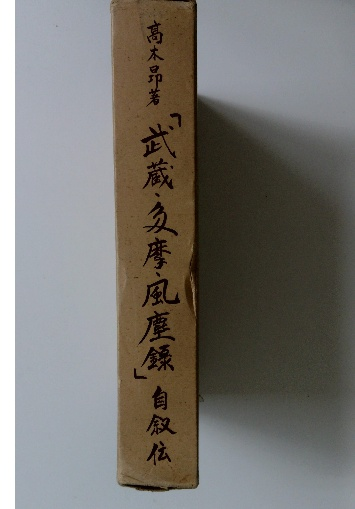 高木昂著「武蔵、多摩、風塵録」自叙伝